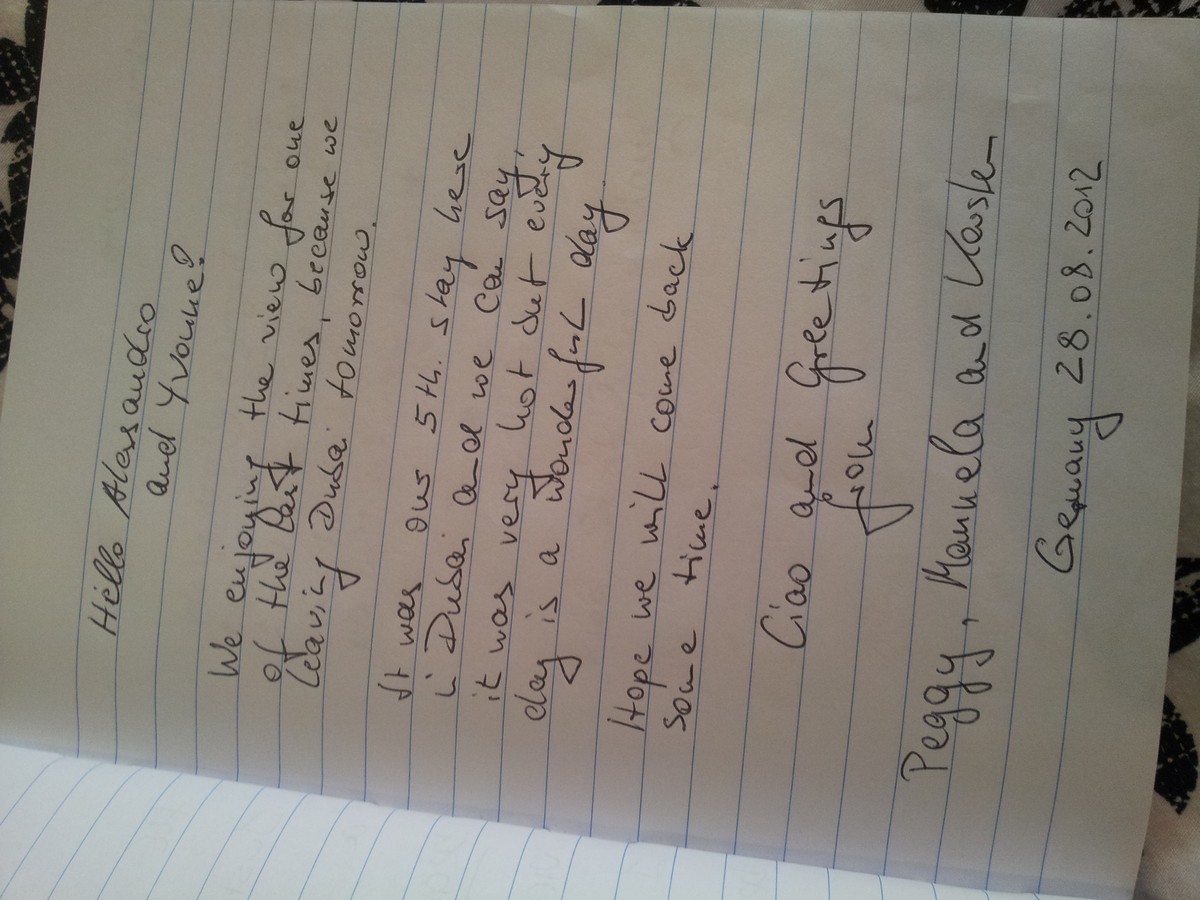 Hello Alessandro
and Yvonne?
We enjoying the view for one
of the last times, because we
leaving Dubai tomorrow.
It was our 5th. stay here
in Dubai and we can say,
it was very hot but every
day is a wonderful day.
Hope we will come back
some time.
Ciao and Greetings
from
Peggy, Manuela and Karsten
Germany 28.08.2012